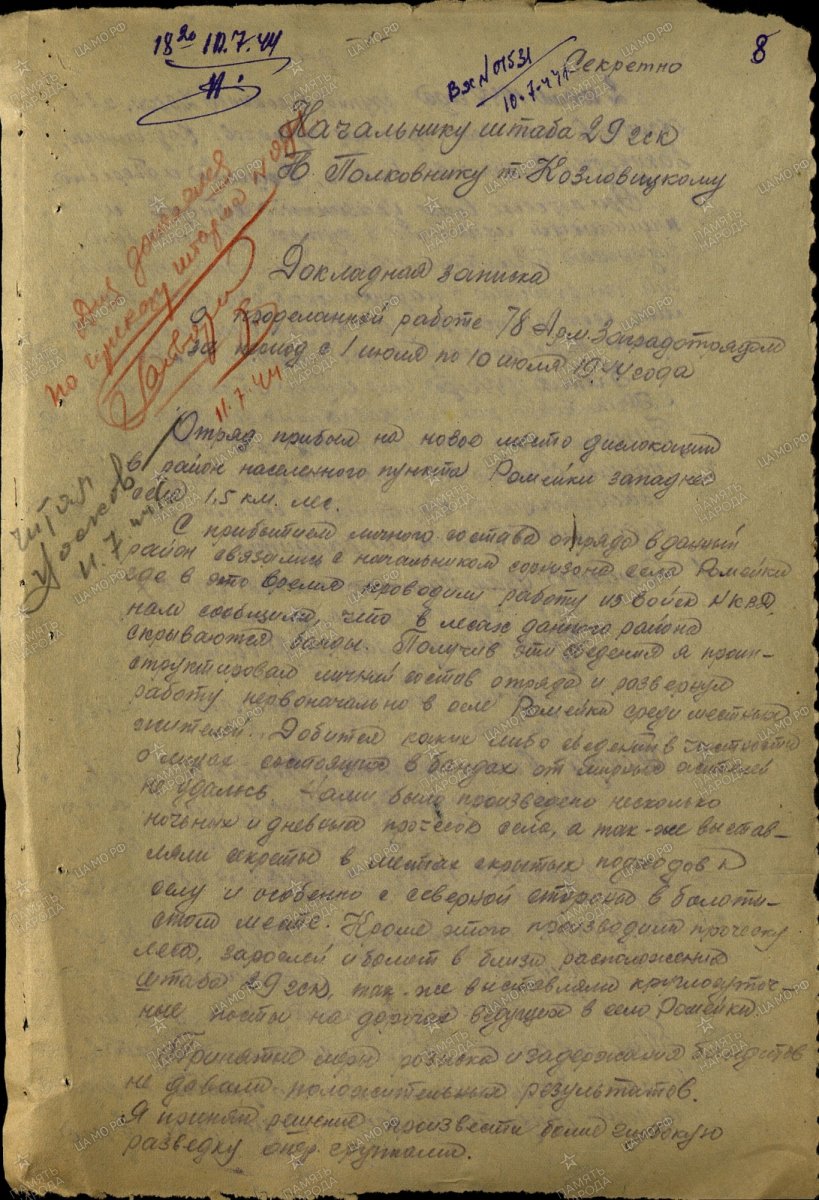 18 20 10.7.44
Вх N 01531
10-7-44
8
Секретно
Начальнику штаба 29 ск
Полковнику т. Козловицкому
Для доклада
по приезду
11.7.44
Докладная записка
О проделанной работе 78 Арм. Заградотрядом
за период с 1 июля по 10 июля 1944 года
читал
11.7.44
Отряд прибыл на новое место дислокации
в район населенного пункта Ромейки западнее
села 1,5 км. лес.
С прибытием личного состава отряда в данный
район связались с начальником гарнизона села Ромейки
где в это время проводили работу из войск НКВД
нам сообщили, что в лесах данного района
скрываются банды. Получив эти сведения я проин-
структировал личный состав отряда и развернул
работу первоначально в селе Ромейки среди местных
жителей. Добится каких либо сведений в частности
о лицах состоящих в бандах от мирных жителей
не удалось. Нами было произведено несколько
ночных и дневных прочесок села, а так-же выстав-
ляли секреты в местах скрытых подходов к
селу и особенно с северной стороны в болоти-
стом месте. Кроме этого производили проческу
леса, зарослей и болот в близи расположения
штаба 29 ск, так-же выставляли круглосуточ-
ные посты на дорогах ведущих в село Ромейки.
Принятые меры розыска и задержания бандитов
не давали положительных результатов.
Я принял решение произвести более глубокую
разведку опер. группами.